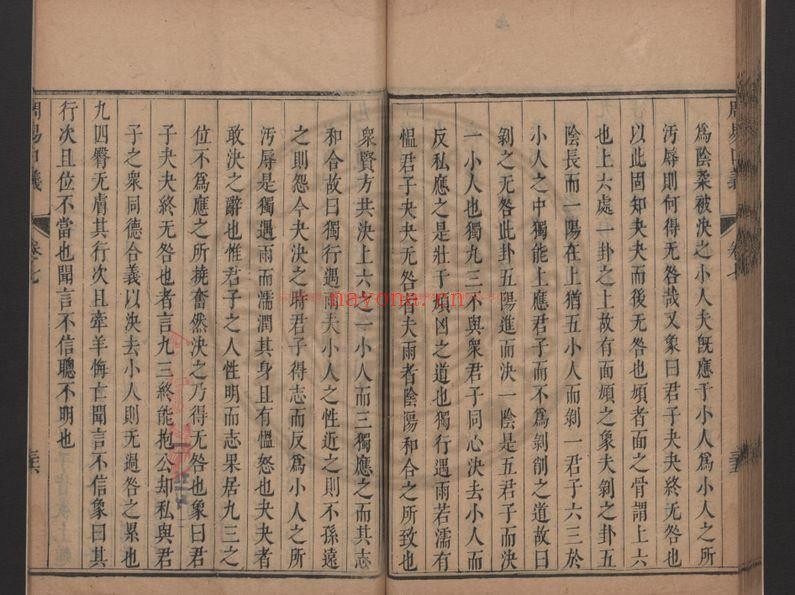 為陰柔被決之小人夫旣應于小人為小人之所
汚辱則何得无咎哉又象曰君子夬夬終无咎也
以此固知夬夬而後无咎也頄者面之骨謂上六
也上六處一卦之上故有面頄之象夫剝之卦五
陰長而一陽在上猶五小人而剝一君子六三於
小人之中獨能上應君子而不為剝削之道故曰
剝之无咎此卦五陽進而決一陰是五君子而決
一小人也獨九三不與衆君子同心決去小人而
反私應之是壯于頄凶之道也獨行遇雨若濡有
愠君子夬夬无咎者夫雨者陰陽和合之所致也
衆賢方共決上六之一小人而三獨應之而其志
和合故曰獨行遇雨夫小人之性近之則不孫遠
之則怨今夬決之時君子得志而反爲小人之所
汚辱是獨遇雨而濡潤其身且有愠怒也夬夬者
敢決之辭也惟君子之人性明而志果居九三之
位不爲應之所撓奮然決之乃得无咎也象曰君
子夬夬終无咎也者言九三終能抱公却私與君
子之衆同德合義以決去小人則无過咎之累也
九四臀无膚其行次且牽羊悔亡聞言不信象曰其
行次且位不當也聞言不信聰不明也
周易口義
卷七
三六
nayona.cn